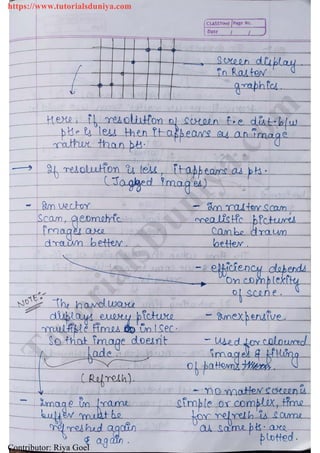 https://www.tutorialsduniya.com
classmate Page No.
Date / /
Screen display
in Raster
graphics.
Here, if resolution of screen i.e dist. b/w
pts is less then it appears as an image
rather than pts.
→ If resolution is less, it appears as pts.
(Jagged images)
- In vector
scan, geometric
images are
drawn better.
- In raster scan
realistic pictures
can be drawn
better.
- efficiency depends
on complexity
of scene.
NOTE:-
The hardware
displays every picture
multiple times in 1 sec.
So that image doesn't
fade
(Refresh).
- Image in frame
buffer must be
refreshed again
& again.
- Inexpensive
- Used for coloured
images & filling
of patterns
- no matter screen is
simple or complex, time
for refresh is same
as same pts. are
plotted.
TutorialsDuniya.com
Contributor: Riya Goel